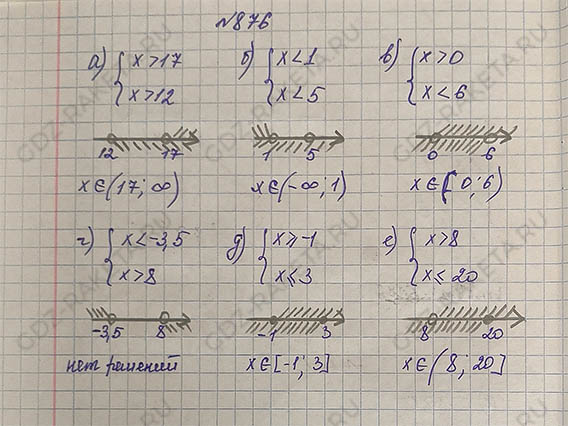 №876
а) { x > 17
x > 12
12 17
x ∈ (17; ∞)
б) { x < 1
x < 5
1 5
x ∈ (-∞; 1)
в) { x > 0
x < 6
0 6
x ∈ (0; 6)
г) { x < -3,5
x > 8
-3,5 8
нет решений
д) { x ⩾ -1
x ⩽ 3
-1 3
x ∈ [-1; 3]
е) { x > 8
x ⩽ 20
8 20
x ∈ (8; 20]
GDZ-RAKETA.RU